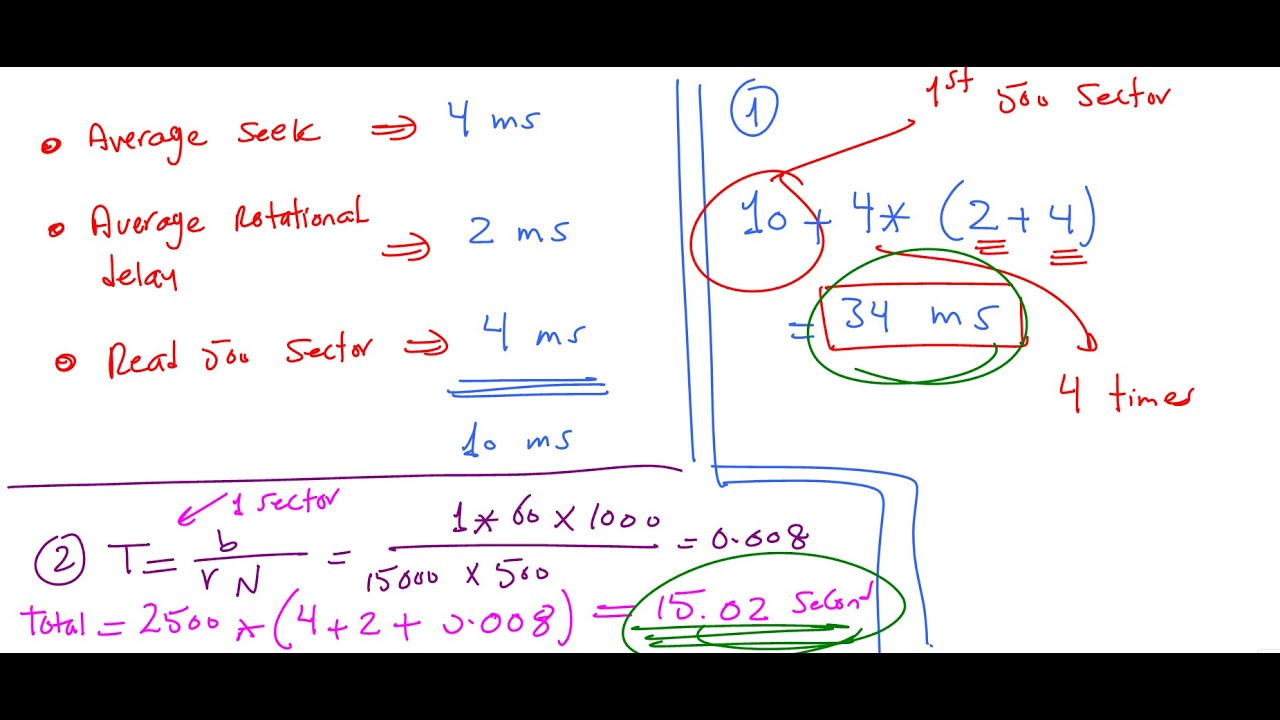 • Average seek ⇒ 4 ms
• Average Rotational
delay ⇒ 2 ms
• Read 500 Sector ⇒ 4 ms
10 ms
①
1st 500 Sector
10 + 4* (2 + 4)
= 34 ms
4 times
1 sector
② T = b / r N = 1 * 60 x 1000 / 15000 x 500 = 0.008
Total = 2500 * (4 + 2 + 0.008) = 15.02 Second